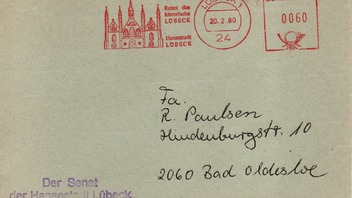 Rettet das
historische
LÜBECK
Hansestadt
LÜBECK
LÜBECK 1
20.2.80
24
0060
Fa.
R. Paulsen
Hindenburgstr. 10
2060 Bad Oldesloe
Der Senat
der Hansestadt Lübeck